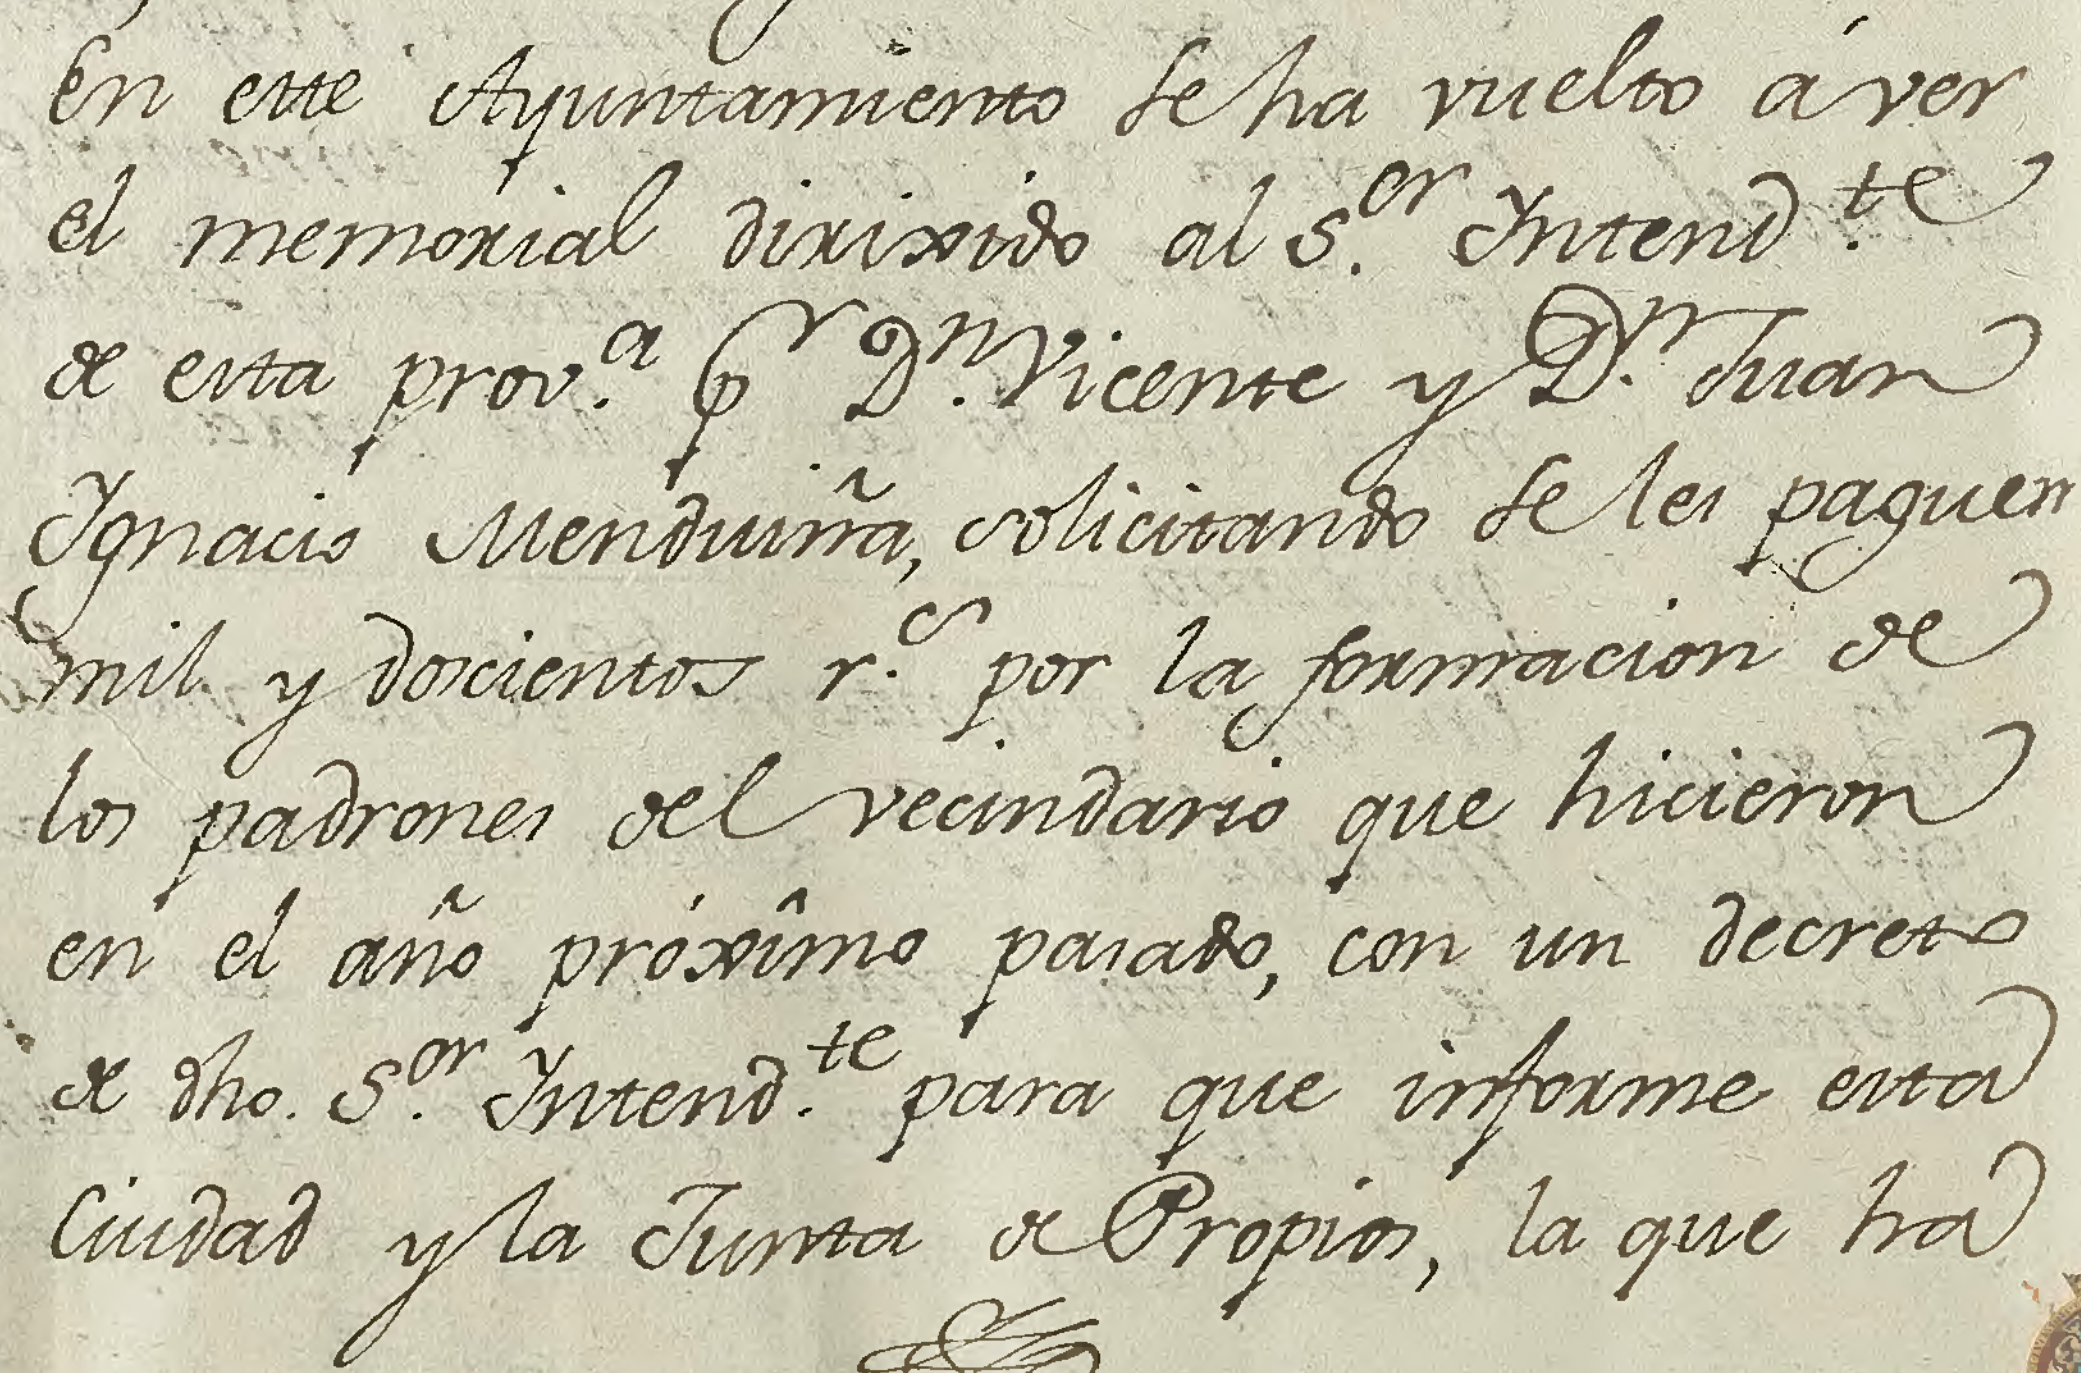 En este Ayuntamiento se ha vuelto á ver
el memorial dirixido al S.or Intend.te
de esta prov.a pr D.n Vicente y D.n Juan
Ignacio Menduiña, solicitando se les paguen
mil y doscientos r.s por la formacion de
los padrones del vecindario que hicieron
en el año próxîmo pasado, con un decreto
de dho. S.or Intend.te para que informe esta
Ciudad y la Junta de Propios, la que ha